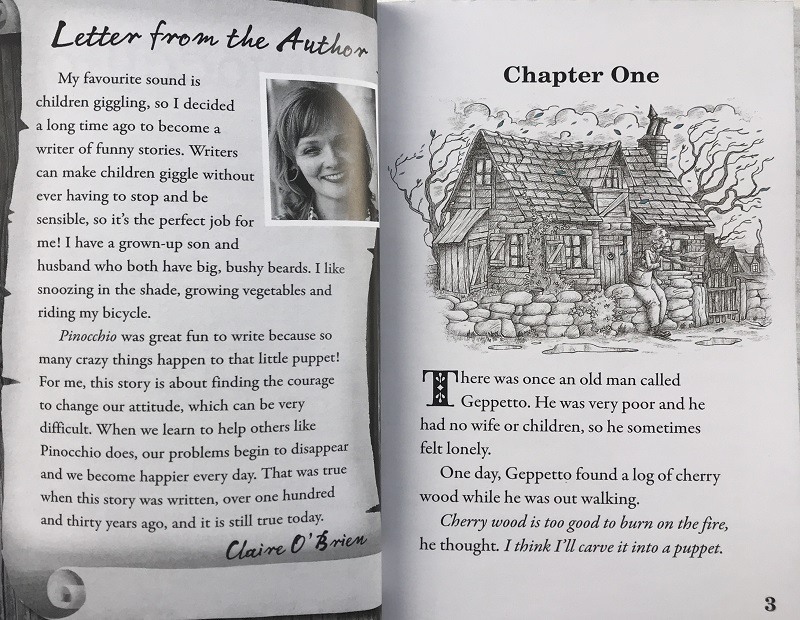 Letter from the Author
My favourite sound is
children giggling, so I decided
a long time ago to become a
writer of funny stories. Writers
can make children giggle without
ever having to stop and be
sensible, so it's the perfect job for
me! I have a grown-up son and
husband who both have big, bushy beards. I like
snoozing in the shade, growing vegetables and
riding my bicycle.
Pinocchio was great fun to write because so
many crazy things happen to that little puppet!
For me, this story is about finding the courage
to change our attitude, which can be very
difficult. When we learn to help others like
Pinocchio does, our problems begin to disappear
and we become happier every day. That was true
when this story was written, over one hundred
and thirty years ago, and it is still true today.
Claire O'Brien
Chapter One
There was once an old man called
Geppetto. He was very poor and he
had no wife or children, so he sometimes
felt lonely.
One day, Geppetto found a log of cherry
wood while he was out walking.
Cherry wood is too good to burn on the fire,
he thought. I think I'll carve it into a puppet.
3